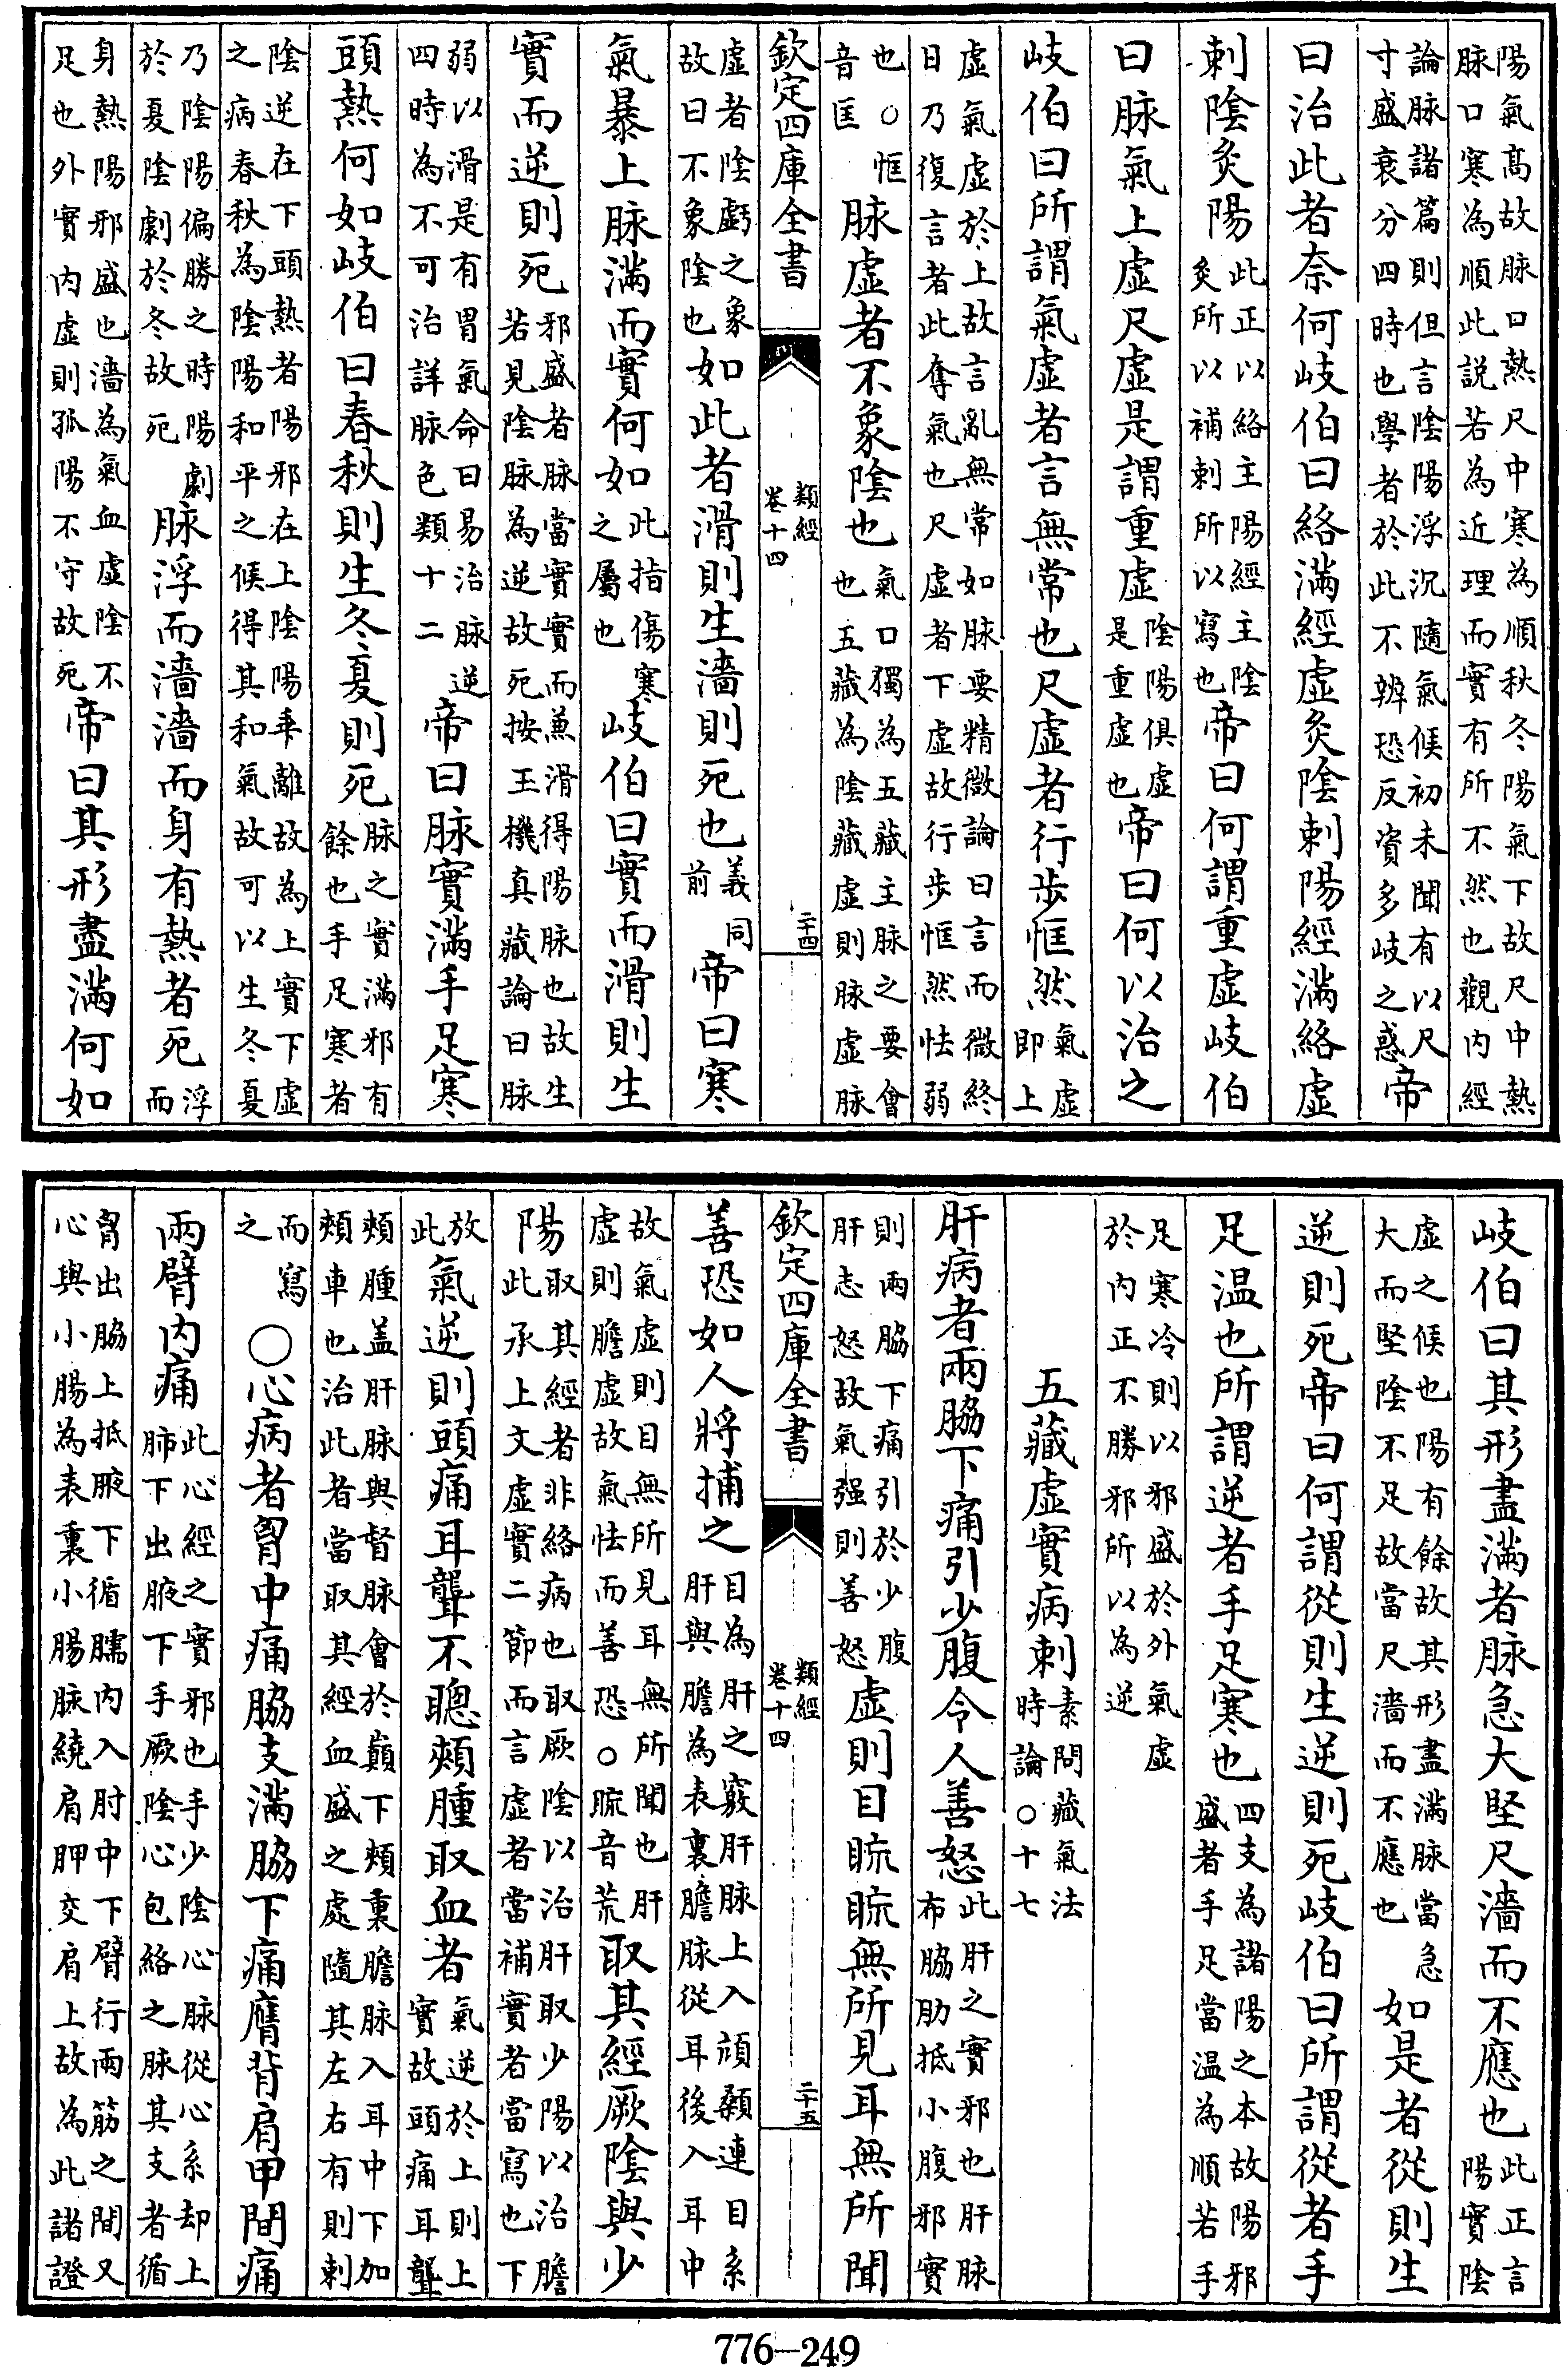 陽氣髙故脉口熱尺中寒為順秋冬陽氣下故尺中熱
脉口寒為順此説若為近理而實有所不然也觀内經
論脉諸篇則但言陰陽浮沉隨氣候初未聞有以尺
寸盛衰分四時也學者於此不辨恐反資多岐之惑帝
曰治此者奈何岐伯曰絡滿經虛灸陰刺陽經滿絡虛
刺陰灸陽此正以絡主陽經主陰
灸所以補刺所以寫也帝曰何謂重虛岐伯
曰脉氣上虛尺虛是謂重虛陰陽俱虛
是重虛也帝曰何以治之
岐伯曰所謂氣虛者言無常也尺虛者行步恇然氣虛
即上
虛氣虛於上故言亂無常如脉要精微論曰言而微終
日乃復言者此奪氣也尺虛者下虛故行步恇然怯弱
也○恇
音匡脉虛者不象陰也氣口獨為五藏主脉之要會
也五藏為陰藏虛則脉虛脉
欽定四庫全書
類經
卷十四
二十四
虛者陰虧之象
故曰不象陰也如此者滑則生濇則死也義同
前帝曰寒
氣暴上脉滿而實何如此指傷寒
之屬也岐伯曰實而滑則生
實而逆則死邪盛者脉當實實而兼滑得陽脉也故生
若見陰脉為逆故死按玉機真藏論曰脉
弱以滑是有胃氣命曰易治脉逆
四時為不可治詳脉色類十二帝曰脉實滿手足寒
頭熱何如岐伯曰春秋則生冬夏則死脉之實滿邪有
餘也手足寒者
陰逆在下頭熱者陽邪在上陰陽乖離故為上實下虛
之病春秋為陰陽和平之候得其和氣故可以生冬夏
乃陰陽偏勝之時陽劇
於夏陰劇於冬故死脉浮而濇濇而身有熱者死浮
而
身熱陽邪盛也濇為氣血虛陰不
足也外實内虛則孤陽不守故死帝曰其形盡滿何如
岐伯曰其形盡滿者脉急大堅尺濇而不應也此正言
陽實陰
虛之候也陽有餘故其形盡滿脉當急
大而堅陰不足故當尺濇而不應也如是者從則生
逆則死帝曰何謂從則生逆則死岐伯曰所謂從者手
足温也所謂逆者手足寒也四支為諸陽之本故陽邪
盛者手足當温為順若手
足寒冷則以邪盛於外氣虛
於内正不勝邪所以為逆
五藏虛實病刺素問藏氣法
時論○十七
肝病者兩脇下痛引少腹令人善怒此肝之實邪也肝脉
布脇肋抵小腹邪實
則兩脇下痛引於少腹
肝志怒故氣强則善怒虛則目䀮䀮無所見耳無所聞
欽定四庫全書
類經
卷十四
二十五
善恐如人將捕之目為肝之竅肝脉上入頏顙連目系
肝與膽為表裏膽脉從耳後入耳中
故氣虛則目無所見耳無所聞也肝
虛則膽虛故氣怯而善恐○䀮音荒取其經厥陰與少
陽取其經者非絡病也取厥陰以治肝取少陽以治膽
此承上文虛實二節而言虛者當補實者當寫也下
放
此氣逆則頭痛耳聾不聰頰腫取血者氣逆於上則上
實故頭痛耳聾
頰腫盖肝脉與督脉會於巔下頰裏膽脉入耳中下加
頰車也治此者當取其經血盛之處隨其左右有則刺
而寫
之○心病者胷中痛脇支滿脇下痛膺背肩甲間痛
兩臂内痛此心經之實邪也手少陰心脉從心系却上
肺下出腋下手厥陰心包絡之脉其支者循
胷出脇上抵腋下循臑内入肘中下臂行兩筋之間又
心與小腸為表裏小腸脉繞肩胛交肩上故為此諸證
776—249